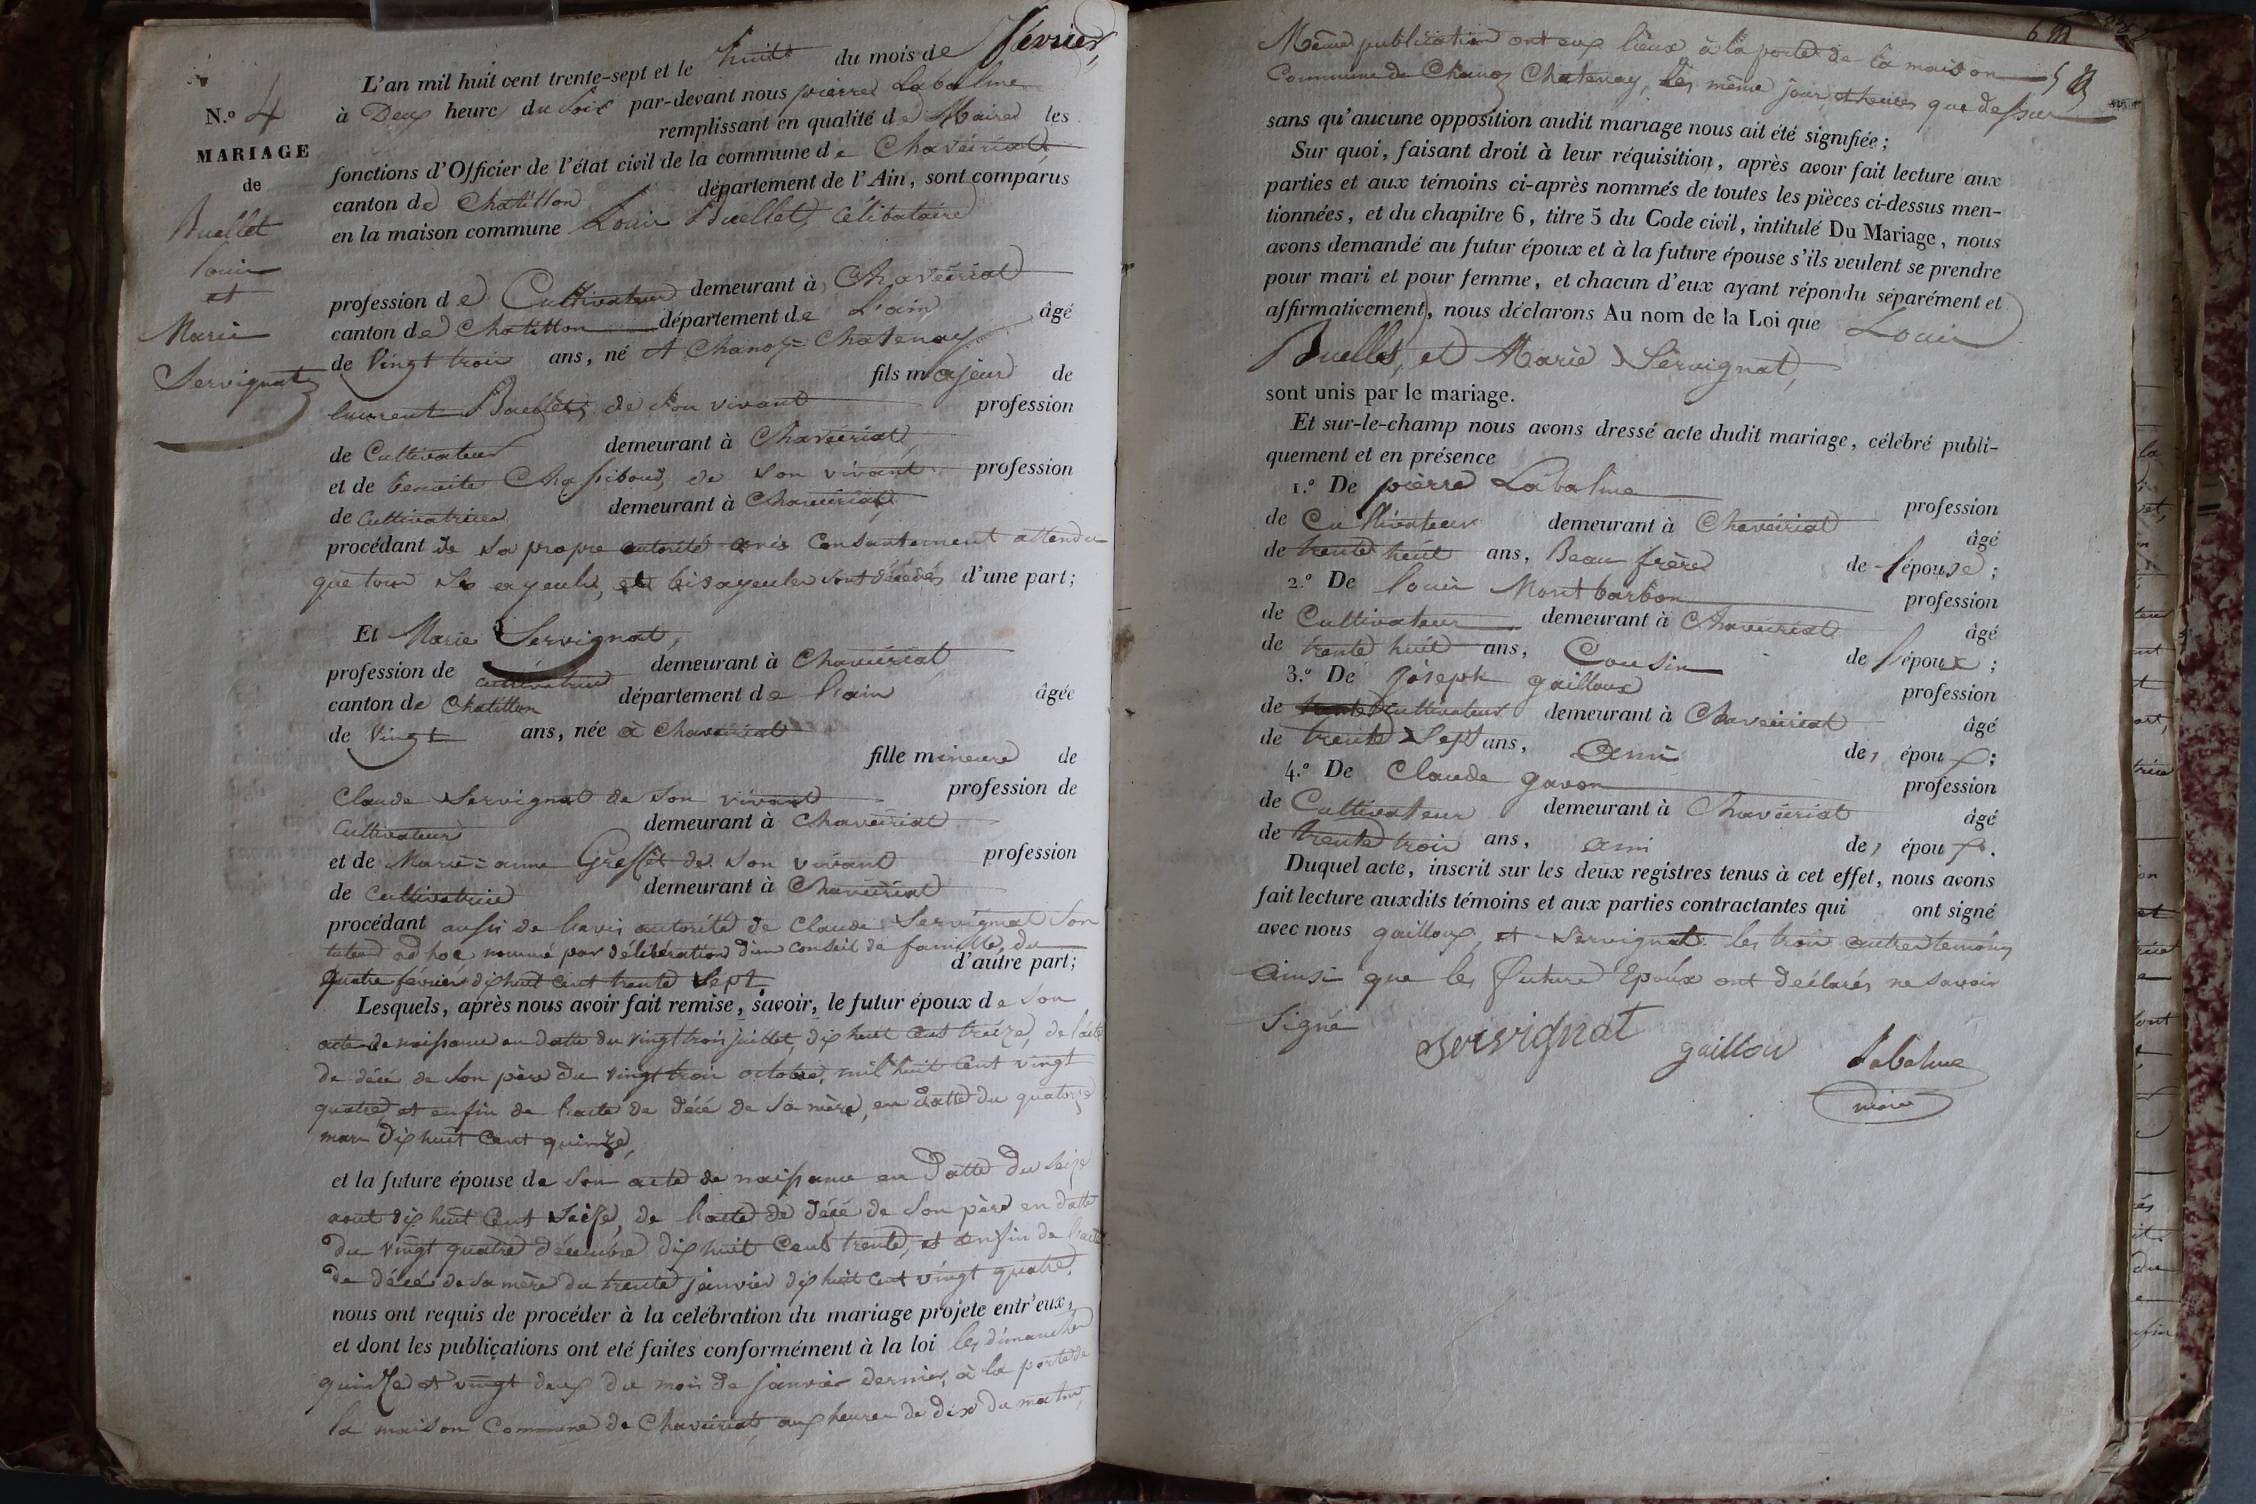 N.º 4
MARIAGE
de
Buellet
louis
et
Marie
Servignat
L'an mil huit cent trente-sept et le huit du mois de février,
à Deux heure du soir par-devant nous pierre Labalme
remplissant en qualité de Maire les
fonctions d'Officier de l'état civil de la commune de Chaveiriat,
canton de Chatillon département de l'Ain, sont comparus
en la maison commune Louis Buellet, célibataire
profession de Cultivateur demeurant à Chaveiriat
canton de Chatillon département de l'ain âgé
de Vingt trois ans, né A Chanoz=Chatenay
fils majeur de
laurent Buellet, de son vivant profession
de Cultivateur demeurant à Chaveiriat
et de benoite Chassiboud, de son vivant profession
de Cultivatrice demeurant à Chaveiriat
procédant de sa propre autorité consentement attendu
que tous ses ayeuls, et bisayeules sont décédés d'une part;
Et Marie Servignat,
profession de cultivatrice demeurant à Chaveiriat
canton de Chatillon département de l'ain âgée
de Vingt ans, née à Chaveiriat
fille mineure de
Claude Servignat de son vivant profession de
Cultivateur demeurant à Chaveiriat
et de Marie=anne Gresset de son vivant profession
de Cultivatrice demeurant à Chaveiriat
procédant aussi de l'avis autorité de Claude Servignat son
tuteur ad hoc nommé par délibération d'un conseil de famille, du
quatre février dix huit cent trente sept d'autre part;
Lesquels, après nous avoir fait remise, savoir, le futur époux de son
acte de naissance en datte du vingt trois juillet, dix huit cent treize, de l'acte
de décé de son père du vingt trois octobre, mil huit cent vingt
quatre, et enfin de l'acte de décé de sa mère, en datte du quatorze
mars dix huit cent quinze,
et la future épouse de son acte de naissance en Datte du seize
aout dix huit cent seize, de l'acte de décé de son père en datte
du vingt quatre décembre dix huit cent trente, et enfin de l'acte
de décé de sa mère du trente janvier dix huit cent vingt quatre,
nous ont requis de procéder à la celébration du mariage projete entr'eux,
et dont les publications ont eté faites conformément à la loi les dimanches
quinze et vingt deux du mois de janvier dernier, à la porte de
la maison Commune de Chaveiriat, aux heures de dix du matin,
Même publication ont eux lieux à la porte de la maison
Commune de Chanoz Chatenay, les même jour et heures que dessus
sans qu'aucune opposition audit mariage nous ait été signifiée;
Sur quoi, faisant droit à leur réquisition, après avoir fait lecture aux
parties et aux témoins ci-après nommés de toutes les pièces ci-dessus men-
tionnées, et du chapitre 6, titre 5 du Code civil, intitulé Du Mariage, nous
avons demandé au futur époux et à la future épouse s'ils veulent se prendre
pour mari et pour femme, et chacun d'eux ayant répondu séparément et
affirmativement, nous déclarons Au nom de la Loi que Louis
Buellet, et Marie Servignat,
sont unis par le mariage.
Et sur-le-champ nous avons dressé acte dudit mariage, célébré publi-
quement et en présence
1.º De pierre Labalme profession
de Cultivateur demeurant à Chaveiriat âgé
de trente huit ans, Beau frère de l'épouse;
2.º De louis Montbarbon profession
de Cultivateur demeurant à Chaveiriat âgé
de trente huit ans, Cousin de l'époux;
3.º De joseph gailloux profession
de cultivateur demeurant à Chaveiriat âgé
de trente Sept ans, ami de, époux;
4.º De Claude gavon profession
de Cultivateur demeurant à Chaveiriat âgé
de trente trois ans, ami de, époux.
Duquel acte, inscrit sur les deux registres tenus à cet effet, nous avons
fait lecture auxdits témoins et aux parties contractantes qui ont signé
avec nous gailloux, et Servignat les trois autres temoins
ainsi que les future Epoux ont déclarés ne savoir
signé
Servignat gaillou Labalme
maire